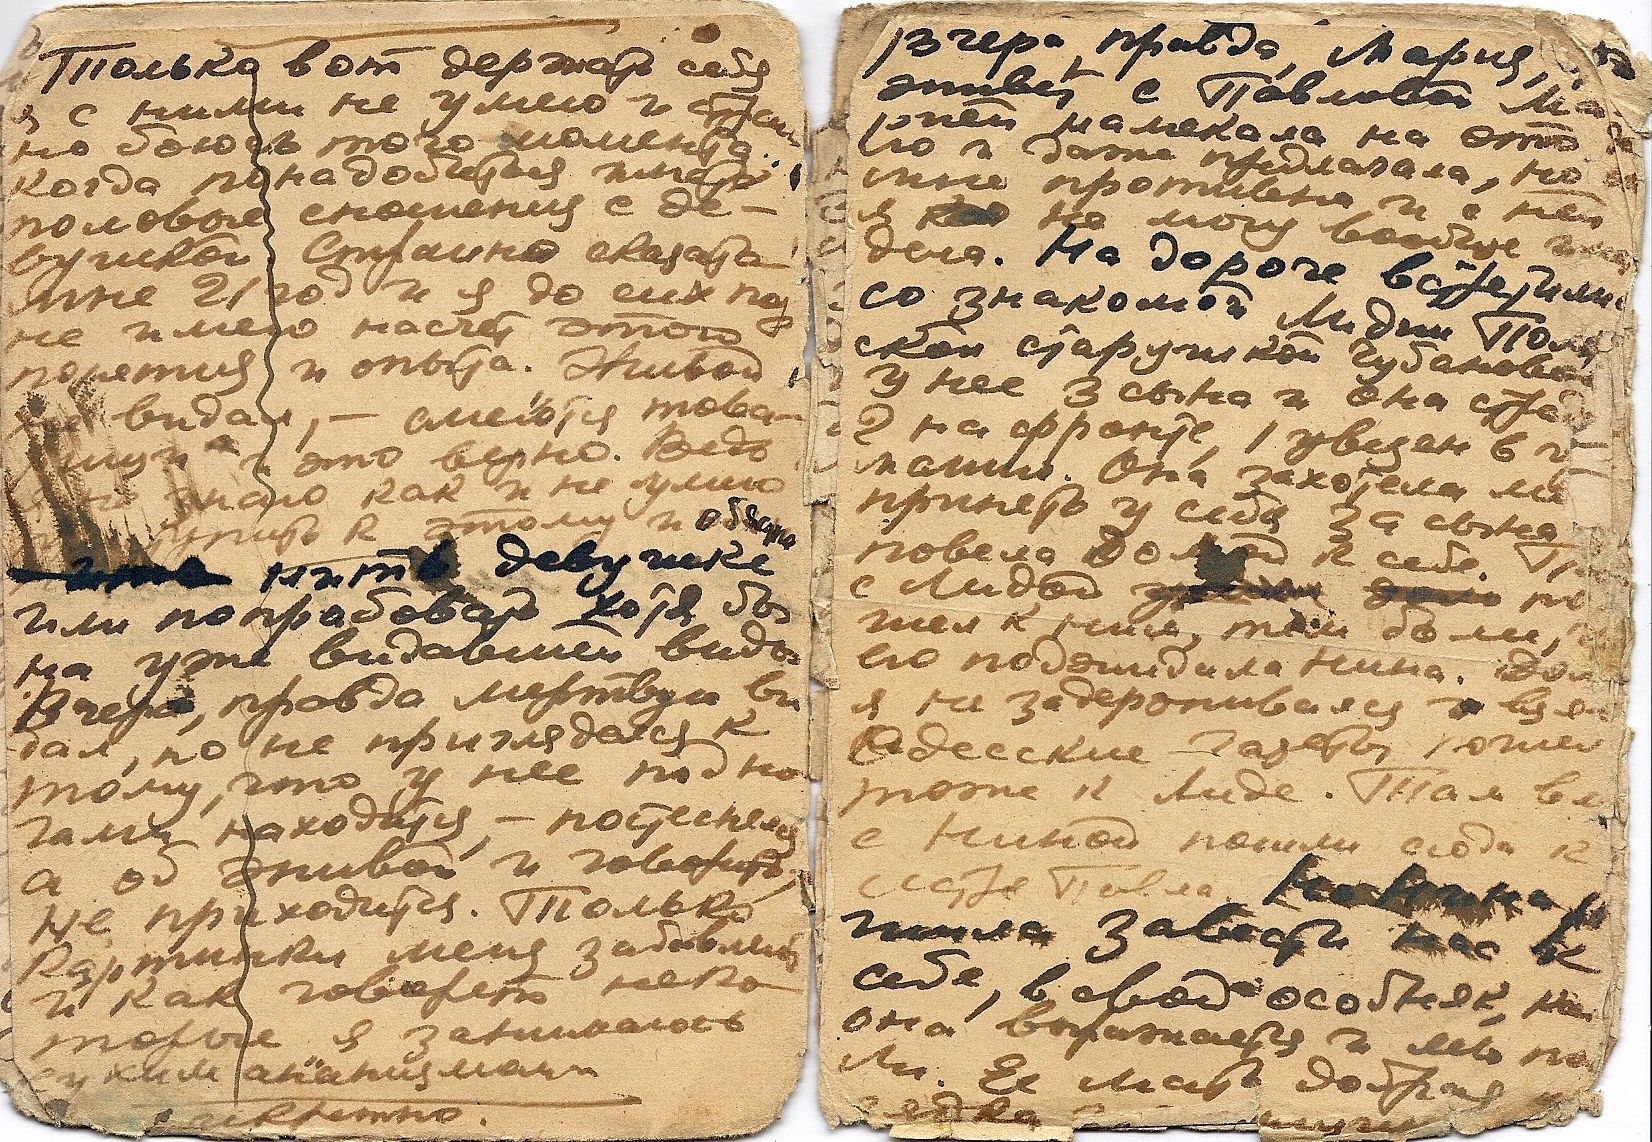 Только вот держать себя
я с ними не умею и страш
но боюсь того момента
когда понадобится иметь
половые сношения с де-
вушкой. Страшно сказать
мне 21 год и я до сих пор
не имею насчет этого
понятия и опыта. Живой
не видал, – смеются това-
рищи и это верно. Ведь
я не знаю как и не умею
к этому и объясни
нить девушке
или попробовать хотя бы
на уже видавшей виды
Вчера, правда мертвую ви
дал, но не приглядался к
тому, что у нее под но
гами находится, – постеснялся
а об живой и говорить
не приходится. Только
картинки меня забавляют
и как говорят неко-
торые я занимаюсь
сухим ананизмом
Вчера правда, Мария,
живет с Павловой Ма
рией намекала на это
и даже предлагала, но
мне противна и с ней
я не могу вообще
дела. На дороге встретили
со знакомой Лидии Поль
ской старушкой Губановой
У нее 3 сына и она
2 на фронте, 1 увезен в
Она захотела ме
принять у себя за сына
повела домой к себе.
с Лидой по
шел к ним, там были,
его поджидала Нина.
я не задерживался и взяв
Одесские газеты, пошел
тоже к Лиде. Там
с Ниной пошли сюда к
Павла. Но Нина
завести нас к
себе, в свой особняк, как
она выражается и мы по
ли. Её мать добрая